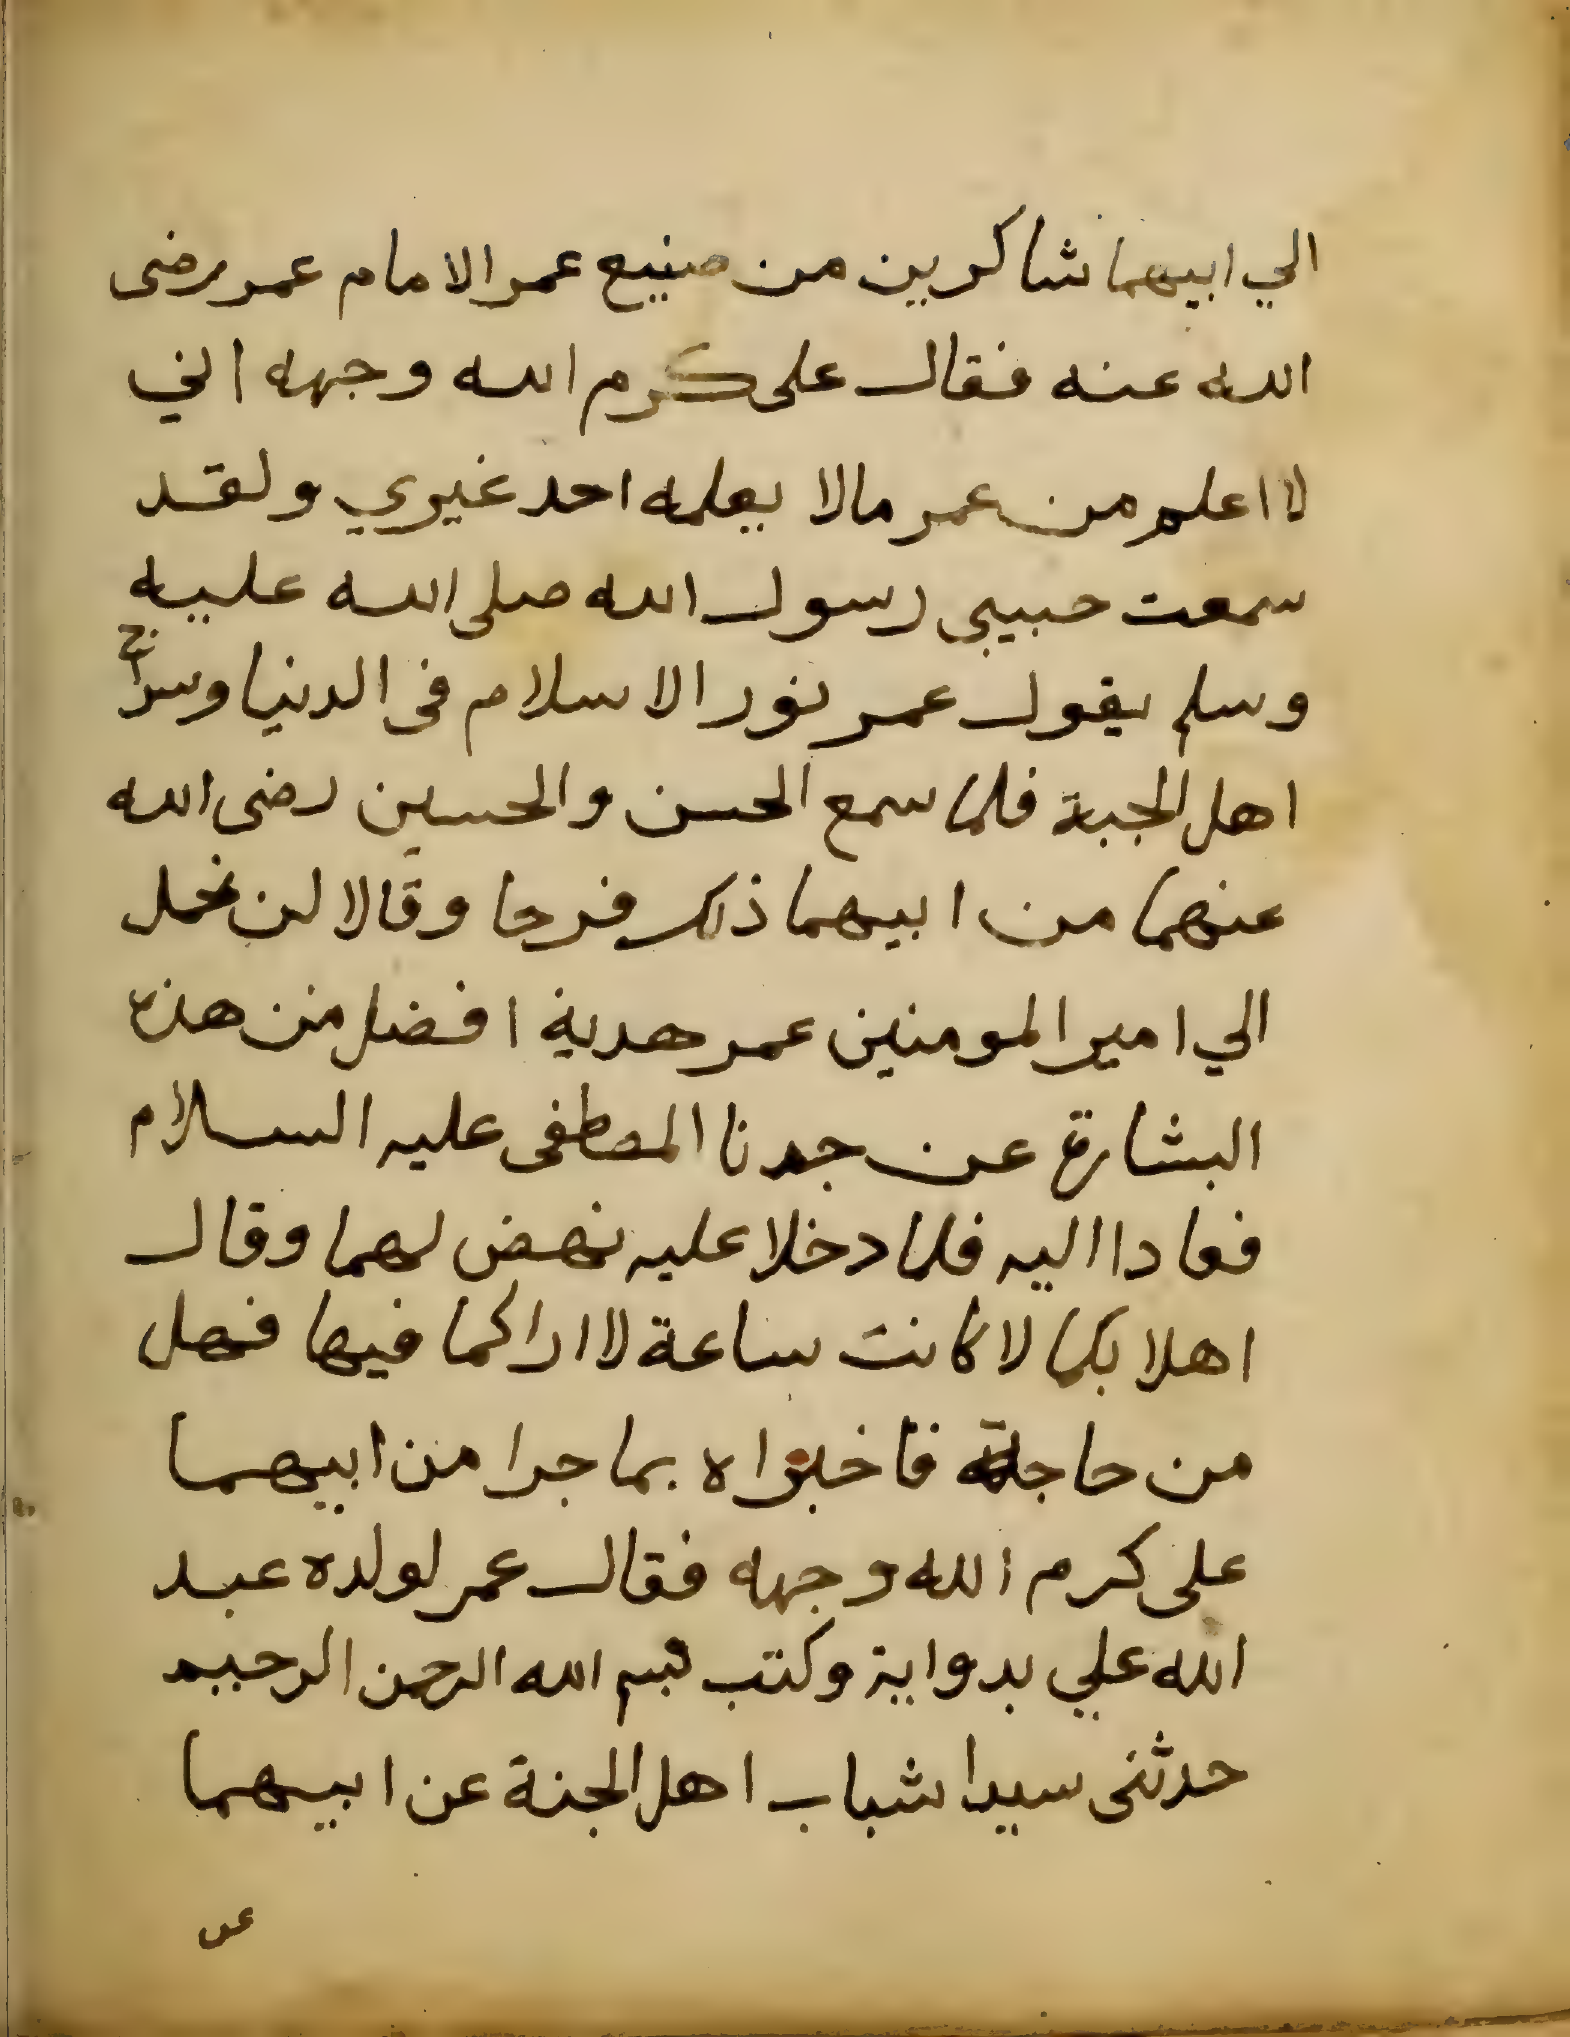 الي ابيهما شاكرين من صنيع عمر الامام عمر رضى
الله عنه فقال على كرم الله وجهه اني
لا اعلم من عمر مالا يعلمه احد غيري ولقد
سمعت حبيبى رسول الله صلى الله عليه
وسلم يقول عمر نور الاسلام فى الدنيا وسراج
اهل الجبة فلما سمع الحسن والحسين رضى الله
عنهما من ابيهما ذلك فرحا وقالا لن نحمل
الي امير المومنين عمر هدية افضل من هذه
البشارة عن جدنا المصطفى عليه السلام
فعادا اليه فلما دخلا عليه نهض لهما وقال
اهلا بكما لا كانت ساعة لا اراكما فيها فهل
من حاجة فاخبراه بما جرا من ابيهما
على كرم الله وجهه فقال عمر لولده عبد
الله علي بدواية وكتب بسم الله الرحمن الرحيم
حدثنى سيدا شباب اهل الجنة عن ابيهما
عن